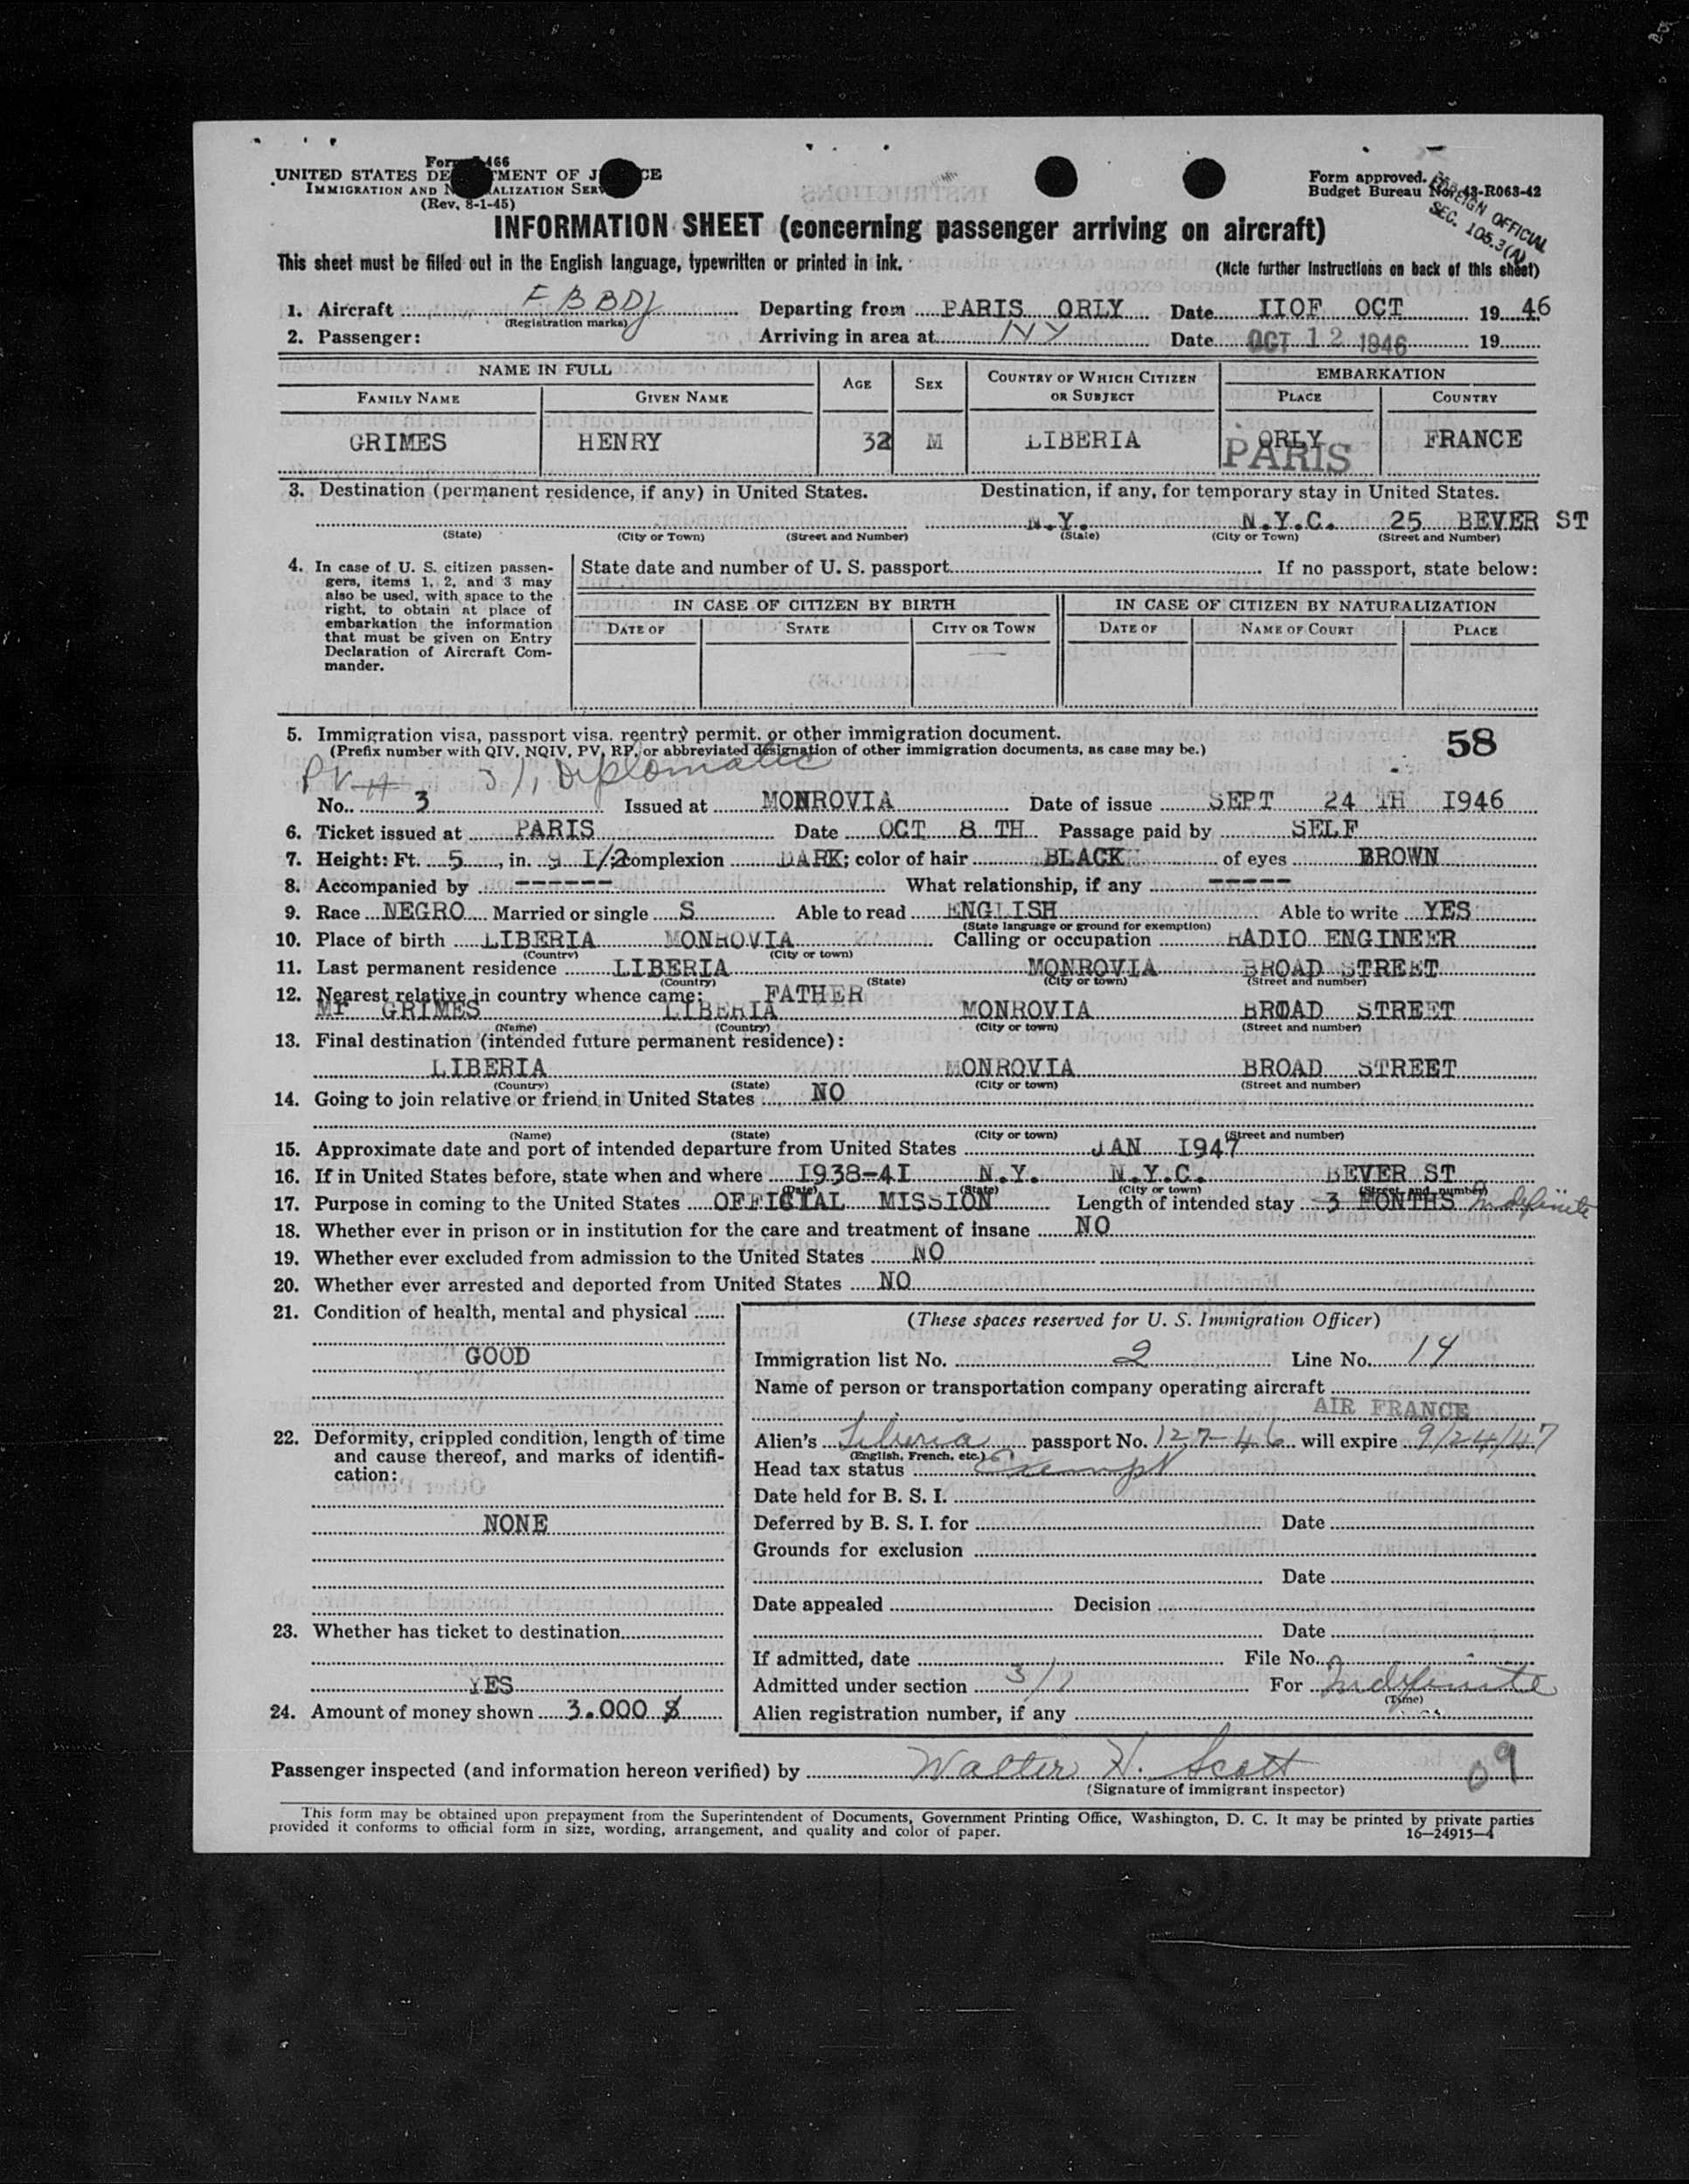 Form I-466
UNITED STATES DEPARTMENT OF JUSTICE
IMMIGRATION AND NATURALIZATION SERVICE
(Rev. 8-1-45)
Form approved.
Budget Bureau No. 43-R063-42
FOREIGN OFFICIAL
SEC. 105.3(A)
INFORMATION SHEET (concerning passenger arriving on aircraft)
This sheet must be filled out in the English language, typewritten or printed in ink.
(Note further instructions on back of this sheet)
1. Aircraft F BBDJ Departing from PARIS ORLY Date IIOF OCT 19 46
(Registration marks)
2. Passenger: Arriving in area at Date OCT 12 1946 19
NAME IN FULL AGE SEX COUNTRY OF WHICH CITIZEN OR SUBJECT EMBARKATION
FAMILY NAME GIVEN NAME PLACE COUNTRY
GRIMES HENRY 32 M LIBERIA ORLY PARIS FRANCE
3. Destination (permanent residence, if any) in United States. Destination, if any, for temporary stay in United States.
N.Y. N.Y.C. 25 BEVER ST
(State) (City or Town) (Street and Number) (State) (City or Town) (Street and Number)
4. In case of U. S. citizen passen-
gers, items 1, 2, and 3 may
also be used, with space to the
right, to obtain at place of
embarkation the information
that must be given on Entry
Declaration of Aircraft Com-
mander.
State date and number of U. S. passport If no passport, state below:
IN CASE OF CITIZEN BY BIRTH IN CASE OF CITIZEN BY NATURALIZATION
DATE OF STATE CITY OR TOWN DATE OF NAME OF COURT PLACE
5. Immigration visa, passport visa, reentry permit, or other immigration document. 58
(Prefix number with QIV, NQIV, PV, RP, or abbreviated designation of other immigration documents, as case may be.)
PV 3/1 Diplomatic
No. 3 Issued at MONROVIA Date of issue SEPT 24 TH I946
6. Ticket issued at PARIS Date OCT 8 TH Passage paid by SELF
7. Height: Ft. 5, in. 9 I/2; complexion DARK; color of hair BLACK of eyes BROWN
8. Accompanied by ------ What relationship, if any -----
9. Race NEGRO Married or single S Able to read ENGLISH Able to write YES
(State language or ground for exemption)
10. Place of birth LIBERIA MONROVIA Calling or occupation RADIO ENGINEER
(Country) (City or town)
11. Last permanent residence LIBERIA MONROVIA BROAD STREET
(Country) (State) (City or town) (Street and number)
12. Nearest relative in country whence came: FATHER
Mr GRIMES LIBERIA MONROVIA BROAD STREET
(Name) (Country) (City or town) (Street and number)
13. Final destination (intended future permanent residence):
LIBERIA MONROVIA BROAD STREET
(Country) (State) (City or town) (Street and number)
14. Going to join relative or friend in United States NO
(Name) (State) (City or town) (Street and number)
15. Approximate date and port of intended departure from United States JAN I947
16. If in United States before, state when and where I938-4I N.Y. N.Y.C. BEVER ST
(Date) (State) (City or town) (Street and number)
17. Purpose in coming to the United States OFFICIAL MISSION Length of intended stay 3 MONTHS Indefinite
18. Whether ever in prison or in institution for the care and treatment of insane NO
19. Whether ever excluded from admission to the United States NO
20. Whether ever arrested and deported from United States NO
21. Condition of health, mental and physical
GOOD
22. Deformity, crippled condition, length of time
and cause thereof, and marks of identifi-
cation:
NONE
23. Whether has ticket to destination
YES
24. Amount of money shown 3.000 $
(These spaces reserved for U. S. Immigration Officer)
Immigration list No. 2 Line No. 14
Name of person or transportation company operating aircraft
AIR FRANCE
Alien's Liberia passport No. 127-46 will expire 9/24/47
(English, French, etc.)
Head tax status Exempt
Date held for B. S. I.
Deferred by B. S. I. for Date
Grounds for exclusion
Date
Date appealed Decision
Date
If admitted, date File No.
Admitted under section 3/1 For Indefinite
(Time)
Alien registration number, if any
Passenger inspected (and information hereon verified) by Walter H. Scott 09
(Signature of immigrant inspector)
This form may be obtained upon prepayment from the Superintendent of Documents, Government Printing Office, Washington, D. C. It may be printed by private parties
provided it conforms to official form in size, wording, arrangement, and quality and color of paper. 16—24915-4